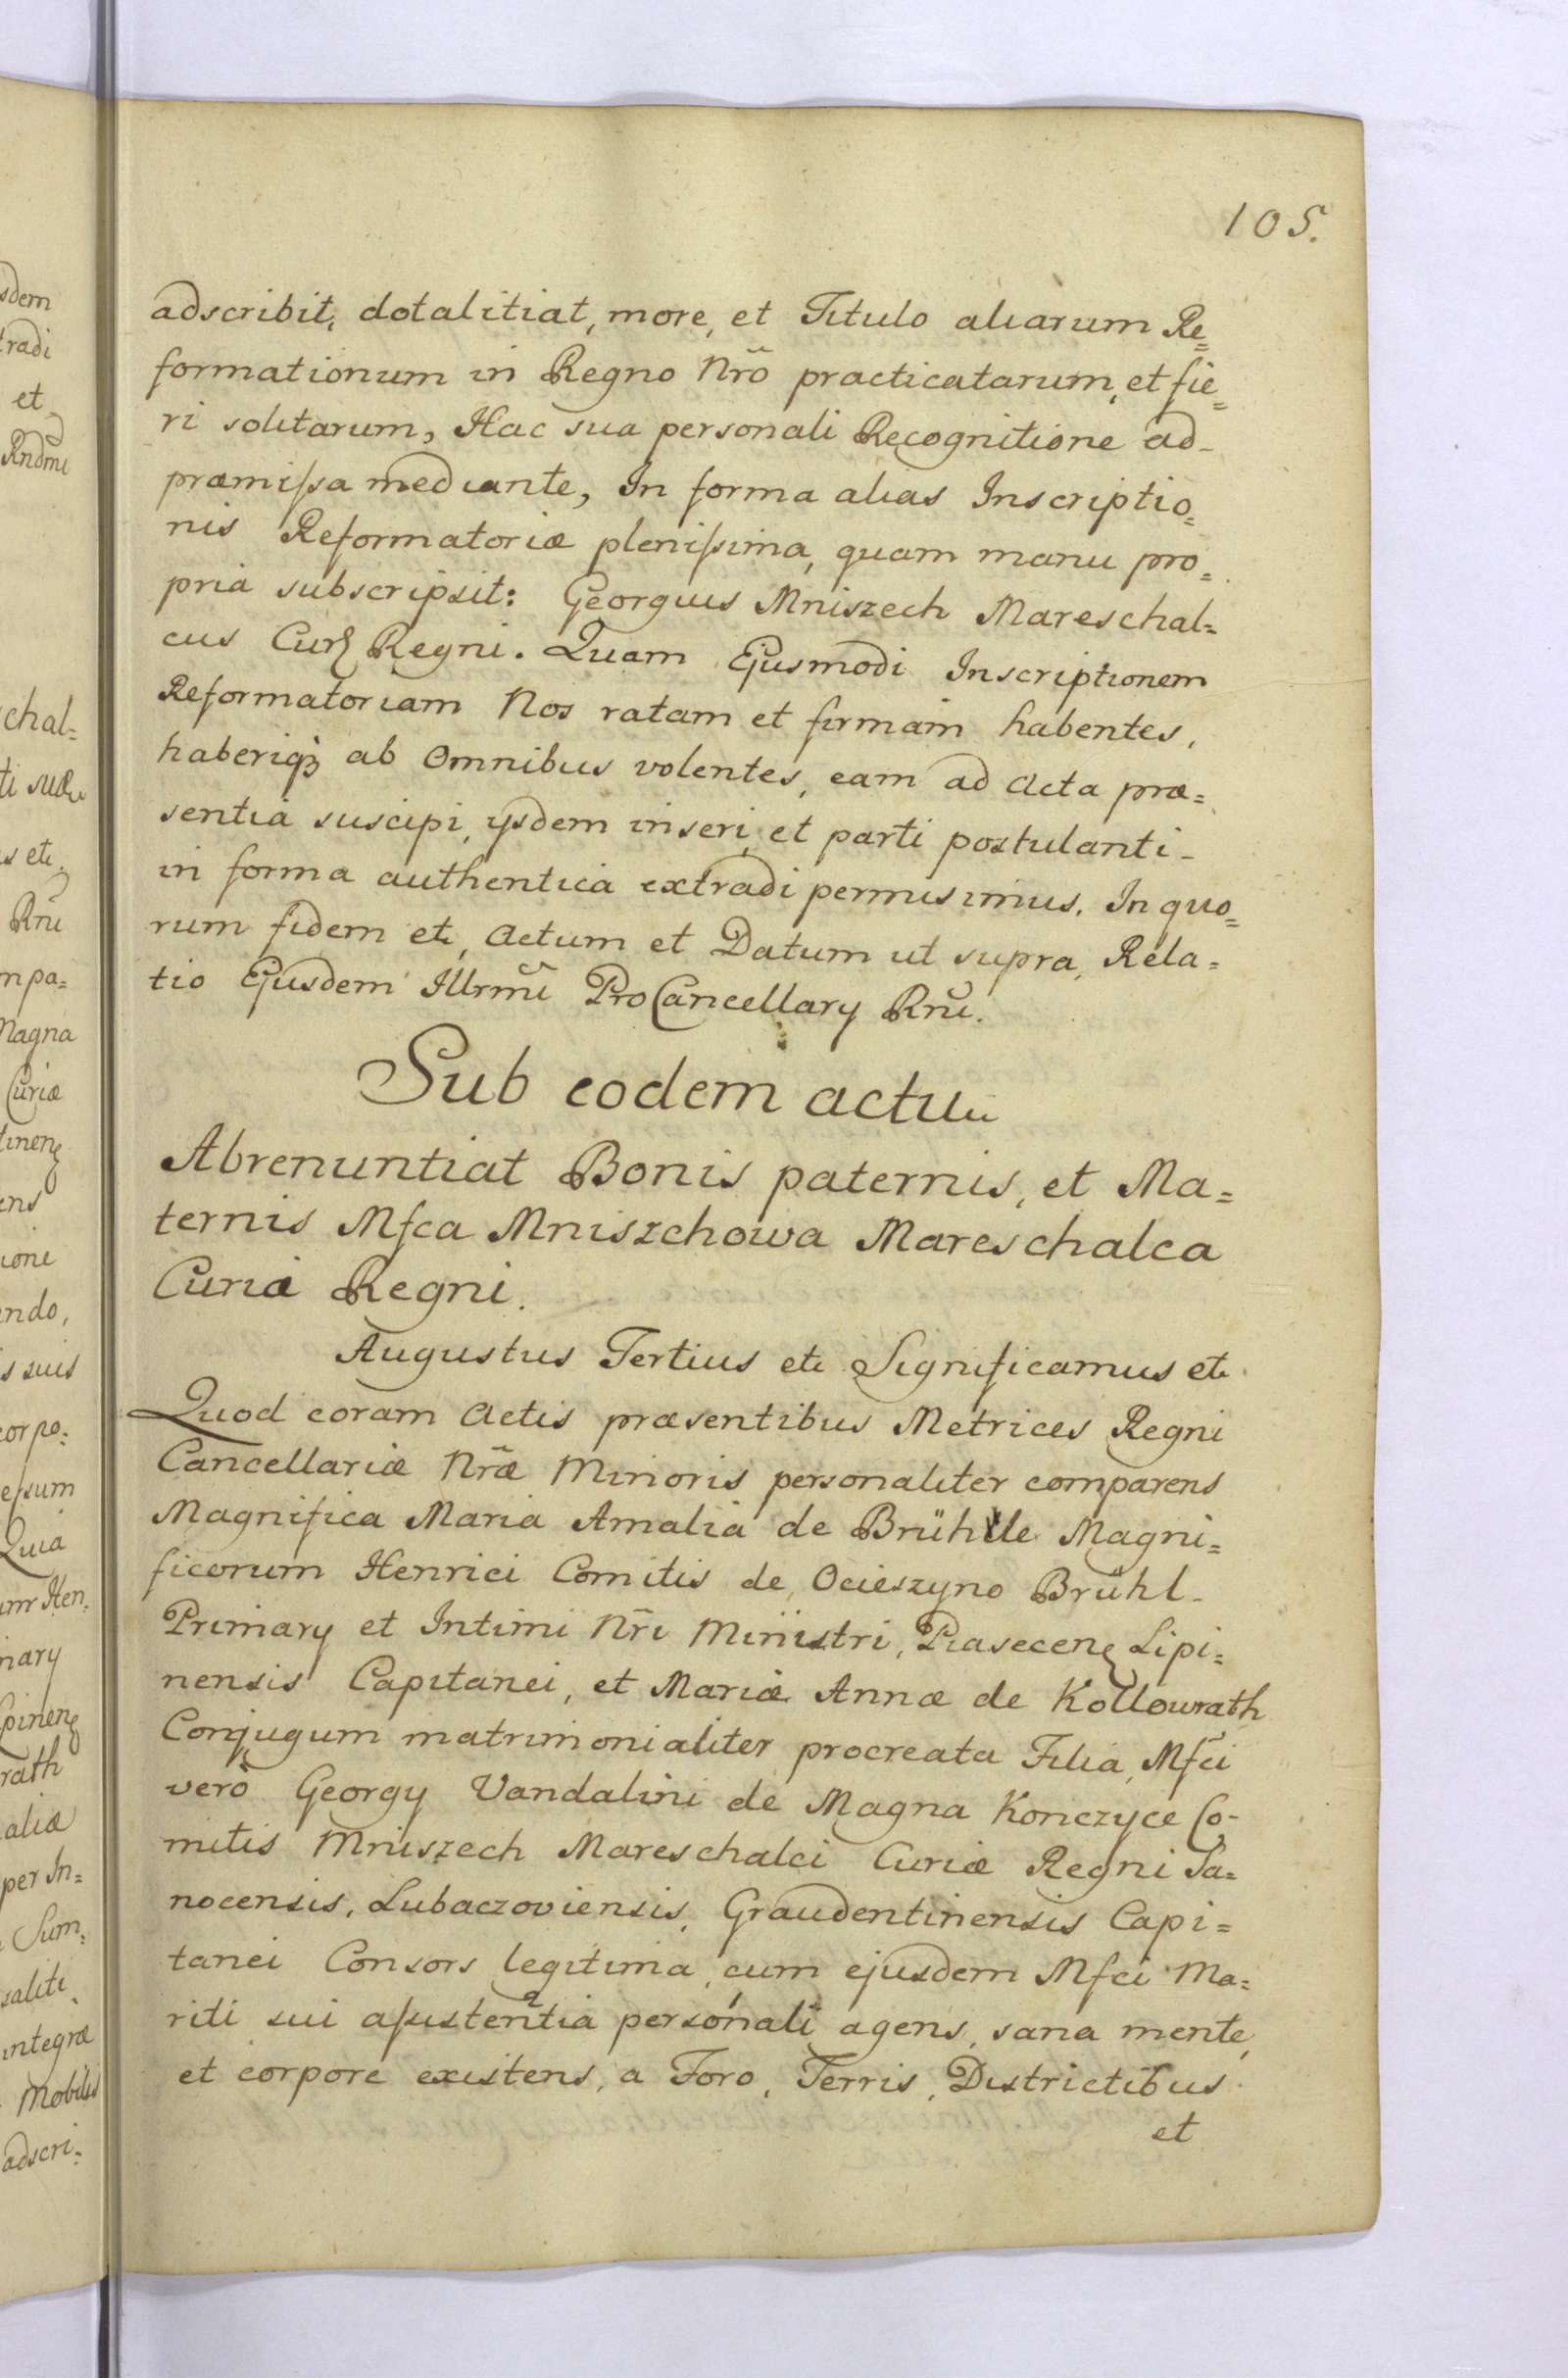 105.
adscribit, dotalitiat, more, et Titulo aliarum Re=
formationum in Regno Nrõ practicatarum, et fie=
ri solitarum, Hac sua personali Recognitione ad-
præmissa mediante, In forma alias Inscriptio=
nis Reformatoriæ plenissima, quam manu pro=
pria subscripsit: Georgius Mniszech Mareschal=
cus Cur Regni. Quam Ejusmodi Inscriptionem
Reformatoriam Nos ratam et firmam habentes,
haberiq3 ab Omnibus volentes, eam ad Acta præ=
sentia suscipi, ijsdem inseri, et parti postulanti-
in forma authentica extradi permisimus. In quo=
rum fidem etc, Actum et Datum ut supra, Rela=
tio Ejusdem Illrmi ProCancellary Rni.
Sub eodem actu
Abrenuntiat Bonis paternis, et Ma=
ternis Mfca Mniszchowa Mareschalca
Curiæ Regni.
Augustus Tertius etc Significamus etc
Quod coram Actis præsentibus Metrices Regni
Cancellariæ Nræ Minoris personaliter comparens
Magnifica Maria Amalia de Brühle Magni=
ficorum Henrici Comitis de Ocieszyno Brühl-
Primary et Intimi Nri Ministri, Piasecen Lipi=
nensis Capitanei, et Mariæ Annæ de Kollowrath
Conjugum matrimonialiter procreata Filia, Mfci
verò Georgy Vandalini de Magna Konczyce Co-
mitis Mniszech Mareschalci Curiæ Regni Sa=
nocensis, Lubaczoviensis, Graudentinensis Capi=
tanei Consors legitima, cum ejusdem Mfci Ma=
riti sui assistentia personali agens, sana mente,
et corpore existens, a Foro, Terris, Districtibus
et
sdem
tradi
et
Rndmi
chal=
ti suæ
s etc
Rni
mpa=
Magna
Curiæ
tinen
ens
ione
ndo,
s suis
corpo=
essum
Quia
Hen=
mary
pinen
rath
aliæ
per In=
Sum=
saliti
integræ
Mobilis
adscri=